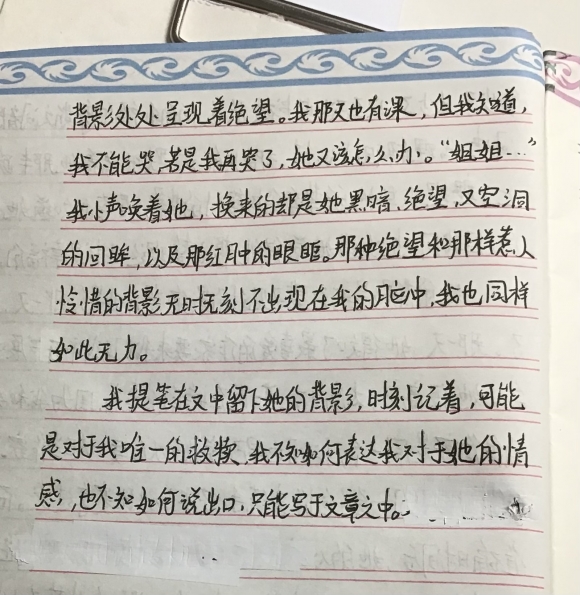 背影处处呈现着绝望。我那天也有课，但我知道，
我不能哭，若是我再哭了，她又该怎么办。“姐姐…”
我小声唤着她，换来的却是她黑暗、绝望、又空洞
的回眸，以及那红肿的眼眶。那种绝望和那样惹人
怜惜的背影无时无刻不出现在我的脑中，我也同样
如此无力。
我提笔在文中留下她的背影，时刻记着，可能
是对于我唯一的救赎，我不知如何表达我对于她的情
感，也不知如何说出口，只能写于文章之中。